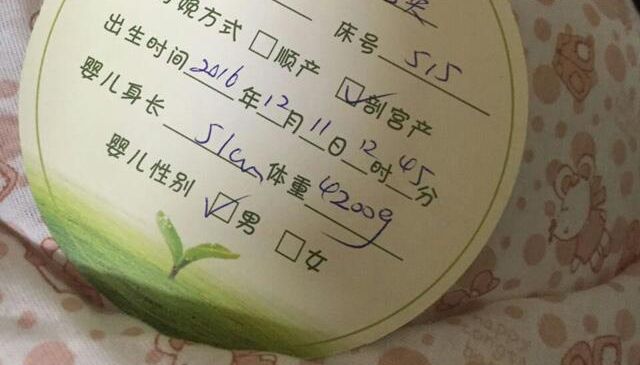 娩方式 □顺产 ☑剖宫产
床号 515
出生时间 2016 年 12 月 11 日 12 时 45 分
婴儿身长 51cm 体重 4200g
婴儿性别 ☑男 □女
HAPPY